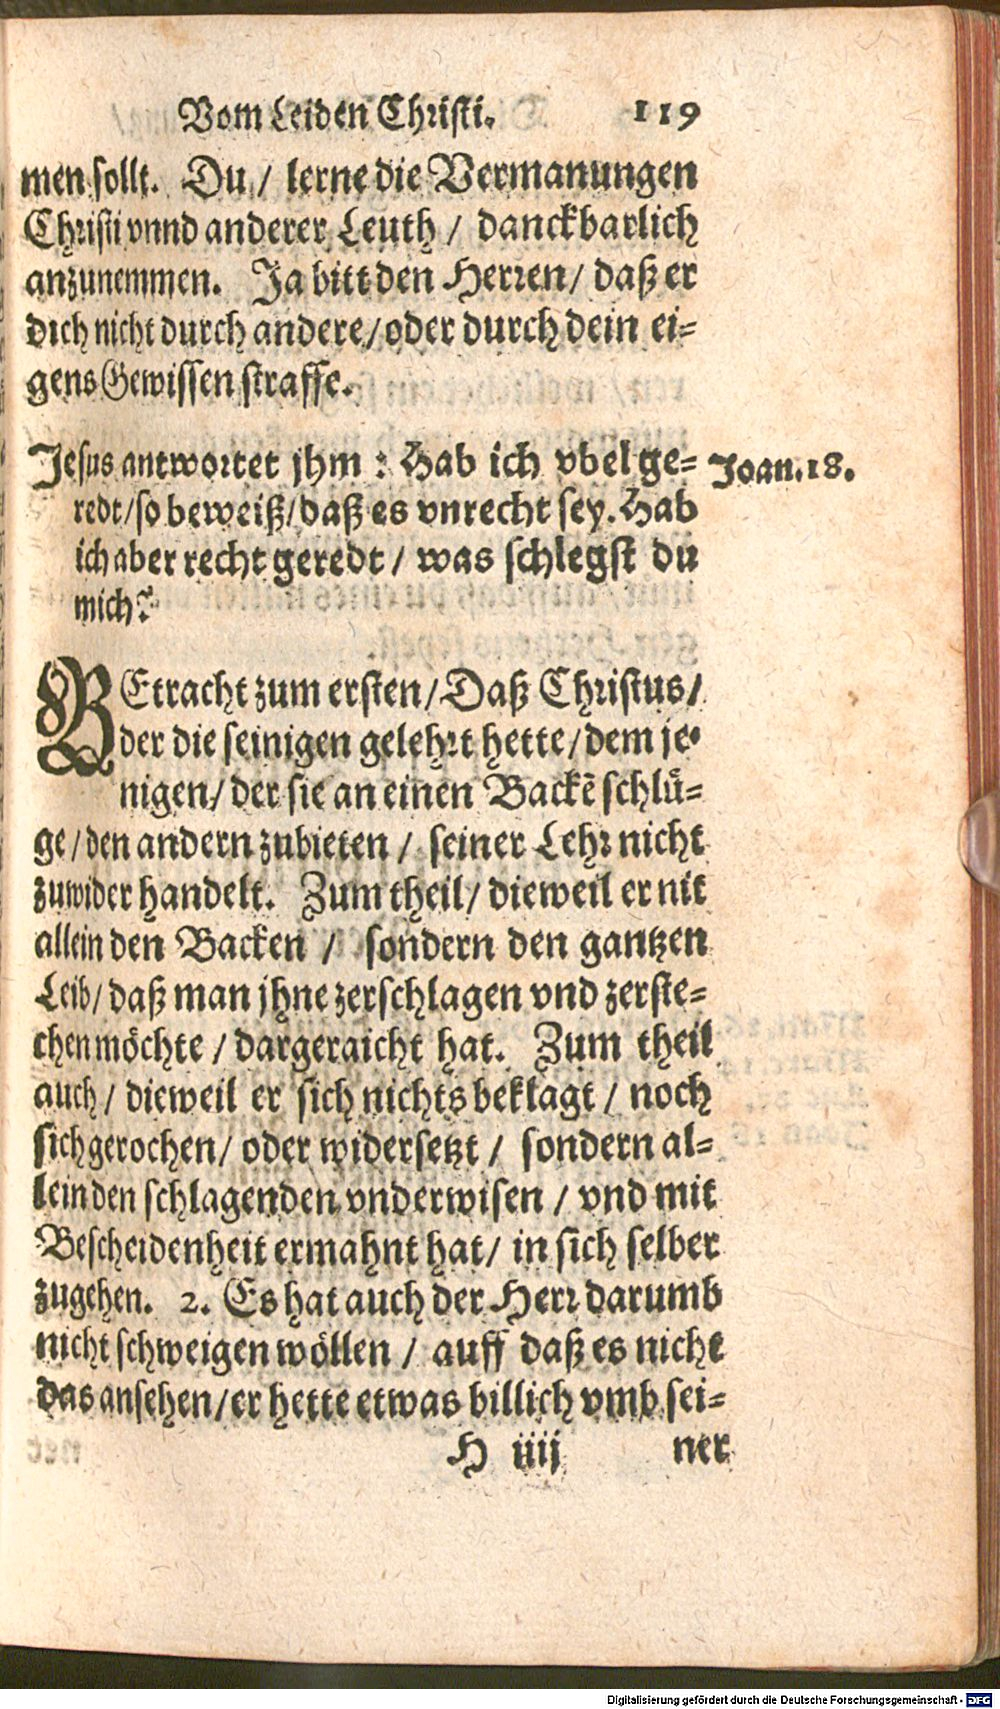 Vom Leiden Christi. 119
men sollt. Du / lerne die Vermanungen
Christi vnnd anderer Leuth / danckbarlich
anzunemmen. Ja bitt den Herren / daß er
dich nicht durch andere / oder durch dein ei-
gens Gewissen straffe.
Jesus antwortet jhm : Hab ich vbel ge-
Joan. 18.
redt / so beweiß / daß es vnrecht sey. Hab
ich aber recht geredt / was schlegst du
mich?
BEtracht zum ersten / Daß Christus /
der die seinigen gelehrt hette / dem je-
nigen / der sie an einen Backẽ schluͤ-
ge / den andern zubieten / seiner Lehr nicht
zuwider handelt. Zum theil / dieweil er nit
allein den Backen / sondern den gantzen
Leib / daß man jhne zerschlagen vnd zerste-
chen moͤchte / dargeraicht hat. Zum theil
auch / dieweil er sich nichts beklagt / noch
sich gerochen / oder widersetzt / sondern al-
lein den schlagenden vnderwisen / vnd mit
Bescheidenheit ermahnt hat / in sich selber
zugehen. 2. Es hat auch der Herr darumb
nicht schweigen woͤllen / auff daß es nicht
das ansehen / er hette etwas billich vmb sei-
H iiij ner
Digitalisierung gefördert durch die Deutsche Forschungsgemeinschaft - DFG